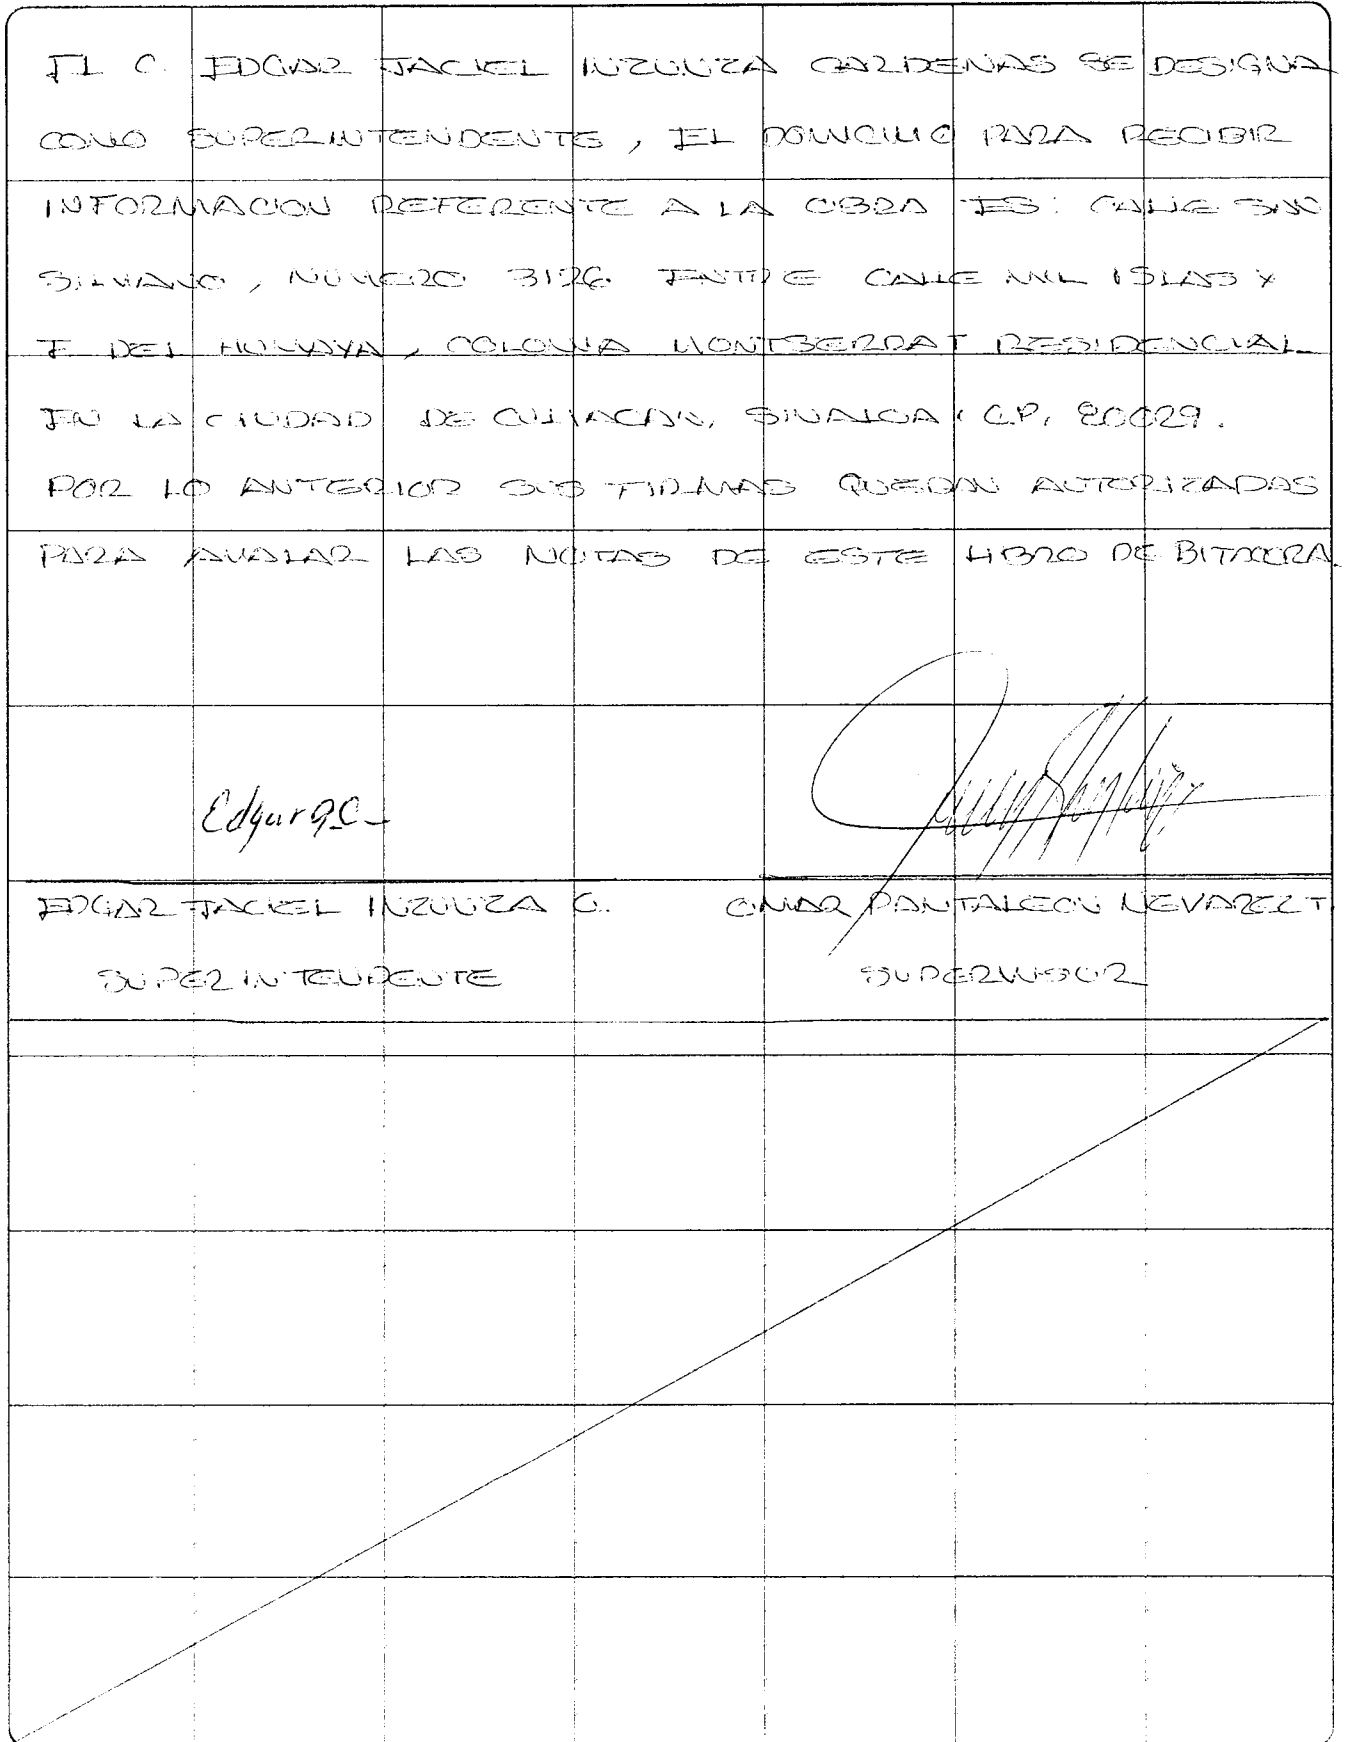 EL C. EDGAR JACKEL INZUNZA CARDENAS SE DESIGNA
COMO SUPERINTENDENTE, EL DOMICILIO PARA RECIBIR
INFORMACION REFERENTE A LA OBRA ES: CALLE SAN
SILVANO, NUMERO 3126 ENTRE CALLE MIL ISLAS Y
E DEL HUMAYA, COLONIA MONTSERRAT RESIDENCIAL
EN LA CIUDAD DE CULIACAN, SINALOA, C.P. 80029.
POR LO ANTERIOR SUS FIRMAS QUEDAN AUTORIZADAS
PARA AVALAR LAS NOTAS DE ESTE LIBRO DE BITACORA.
Edgar
EDGAR JACKEL INZUNZA C. OMAR PANTALEON NEVAREZ T
SUPERINTENDENTE SUPERVISOR